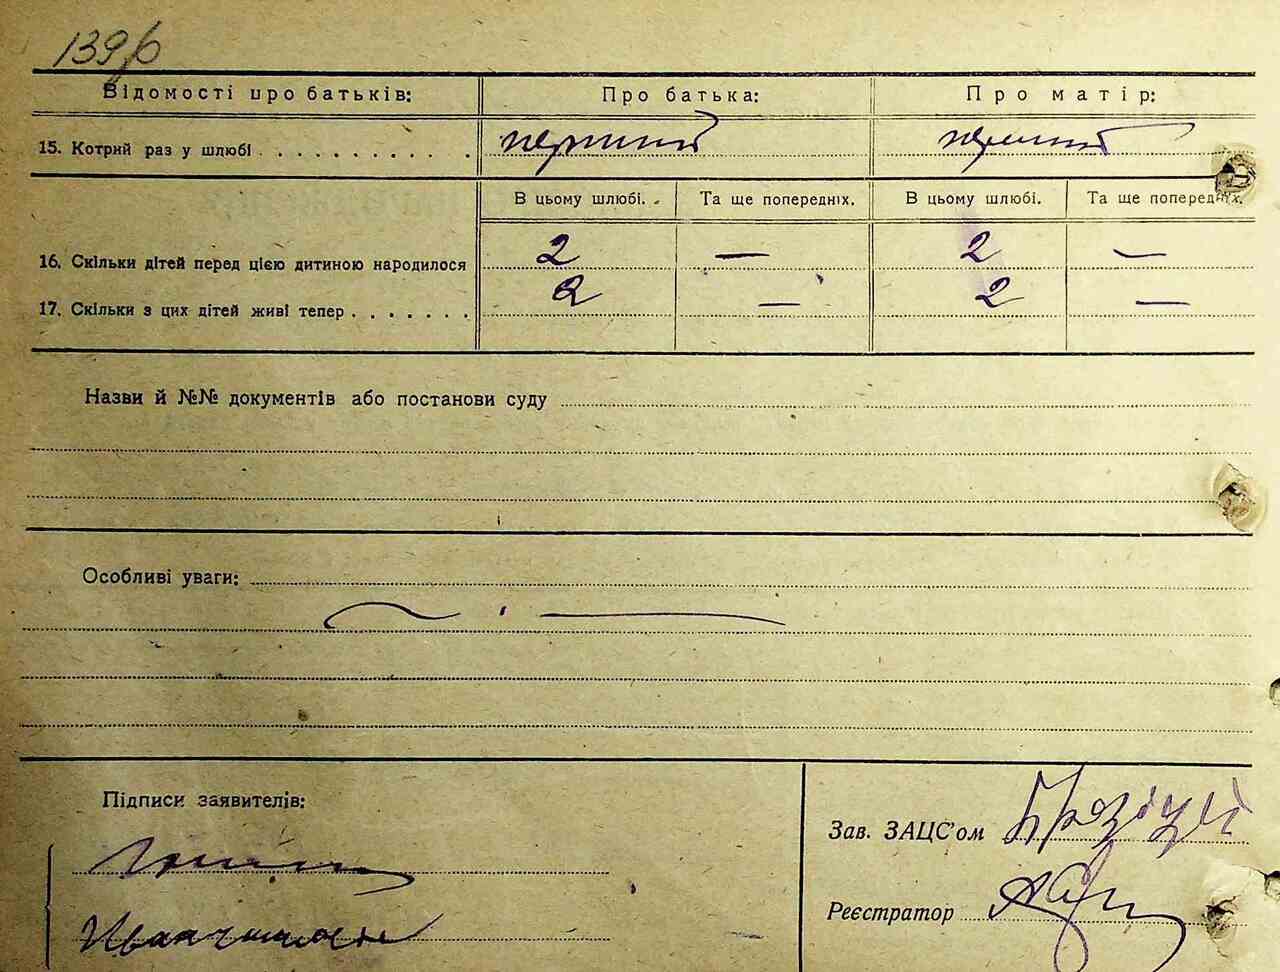 139
Відомості про батьків: Про батька: Про матір:
15. Котрий раз у шлюбі . . . . . . . . . . . перший перший
В цьому шлюбі. Та ще попередніх. В цьому шлюбі. Та ще попередніх.
16. Скільки дітей перед цією дитиною народилося 2 — 2 —
17. Скільки з цих дітей живі тепер . . . . . . . 2 — 2 —
Назви й №№ документів або постанови суду
Особливі уваги:
Підписи заявителів:
Зав. ЗАЦС'ом
Реєстратор